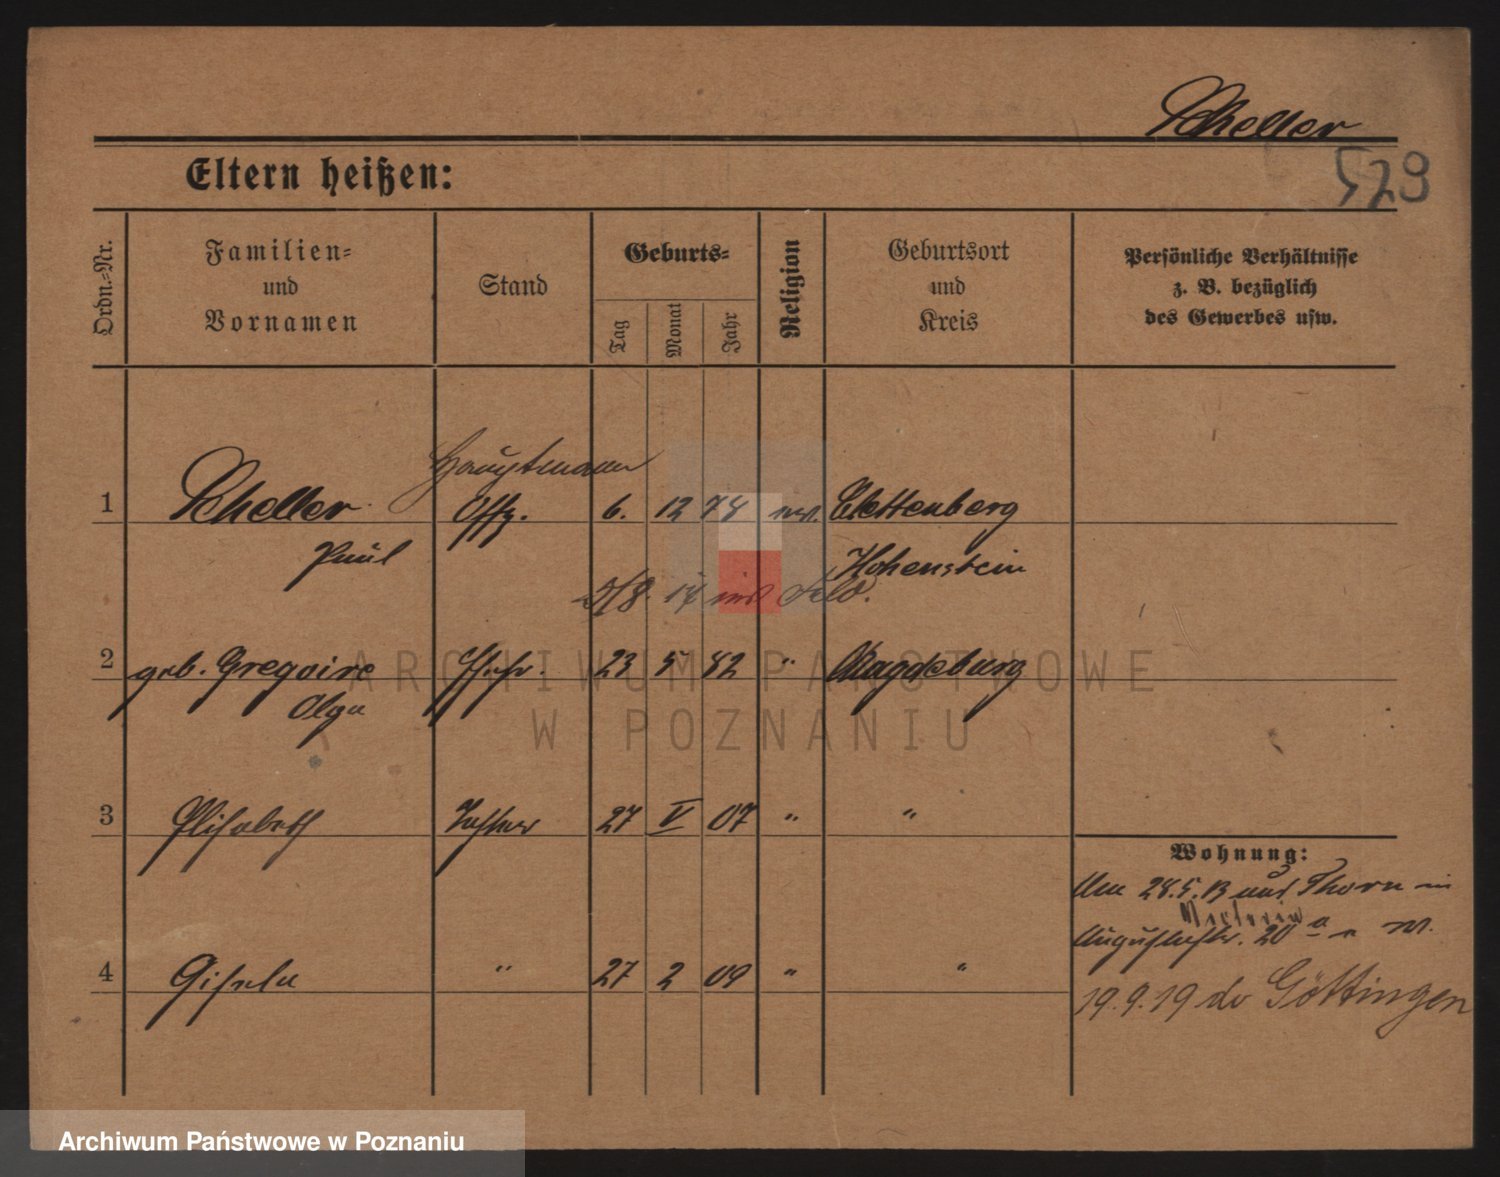 Scheller
529
Eltern heißen:
Ordn.-Nr.
Familien-
und
Vornamen
Stand
Geburts-
Tag
Monat
Jahr
Religion
Geburtsort
und
Kreis
Persönliche Verhältnisse
z. B. bezüglich
des Gewerbes usw.
Hauptmann
1 Scheller Offz. 6. 12 74 ev. Clettenberg
Paul Hohenstein
3/8. 14 ins Feld.
2 geb. Gregoire Ehefr. 23 5 82 " Magdeburg
Olga
3 Elisabeth Tochter 27 V 07 " "
Wohnung:
Am 28.5.13 aus Thorn in
4 Gisela " 27 2 09 " "
Augustastr. 20
19.9.19 do Göttingen
ARCHIWUM PAŃSTWOWE
W POZNANIU
Archiwum Państwowe w Poznaniu